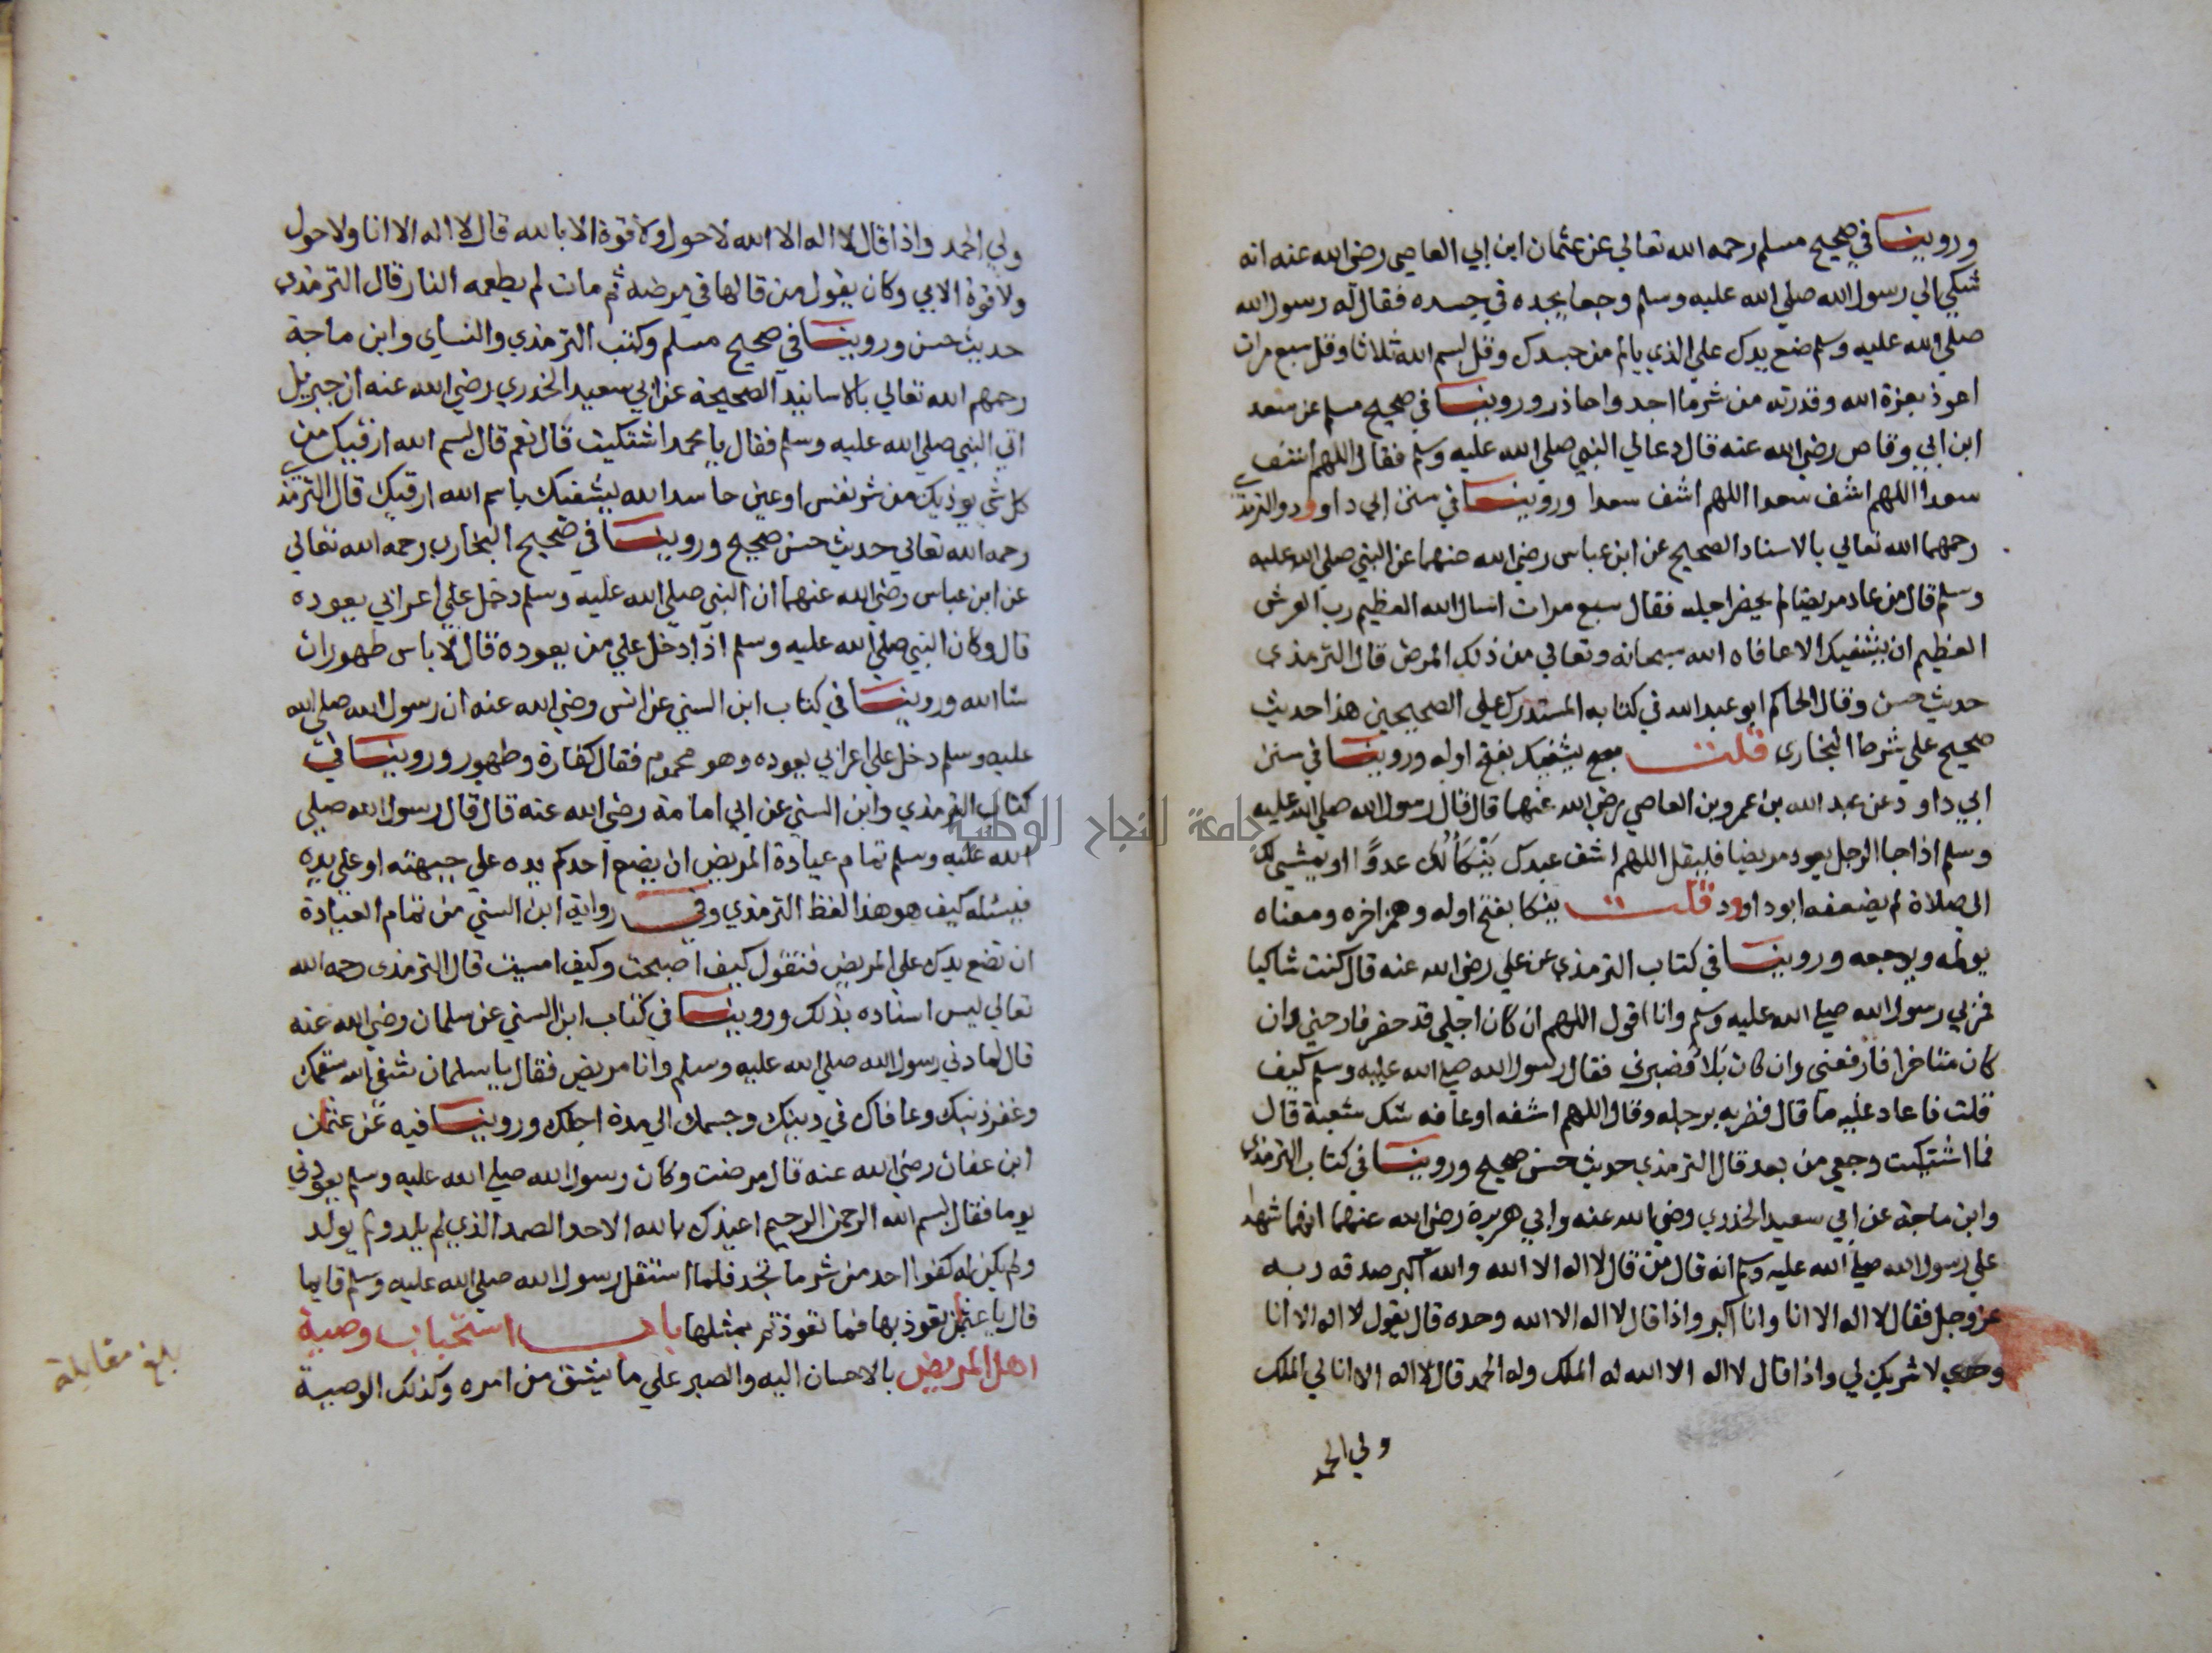 وروينا في صحيح مسلم رحمه الله تعالي عن عثمان ابن ابي العاصي رضي الله عنه انه
شكي الي رسول الله صلي الله عليه وسلم وجعا يجده في جسده فقال له رسول الله
صلي الله عليه وسلم ضع يدك علي الذي يالم من جسدك وقل بسم الله ثلاثا وقل سبع مرات
اعوذ بعزة الله وقدرته من شر ما اجد واحاذر وروينا في صحيح مسلم عن سعد
ابن ابي وقاص رضي الله عنه قال دعالي النبي صلي الله عليه وسلم فقال اللهم اشف
سعدا اللهم اشف سعدا اللهم اشف سعدا وروينا في سنن ابي داوود والترمذي
رحمهما الله تعالي بالاسناد الصحيح عن ابن عباس رضي الله عنهما عن النبي صلي الله عليه
وسلم قال من عاد مريضا لم يحضر اجله فقال سبع مرات اسال الله العظيم رب العرش
العظيم ان يشفيك الا عافاه الله سبحانه وتعالي من ذلك المرض قال الترمذي
حديث حسن وقال الحاكم ابو عبد الله في كتابه المستدرك علي الصحيحين هذا حديث
صحيح علي شرط البخاري قلت يشفيك بفتح اوله وروينا في سنن
ابي داود عن عبد الله بن عمرو بن العاصي رضي الله عنهما قال قال رسول الله صلي الله عليه
وسلم اذا جا الرجل يعود مريضا فليقل اللهم اشف عبدك يَنْكَأُ لك عدوًّا او يمشي لك
الي صلاة لم يضعفه ابو داوود قلت ينكا بفتح اوله وهمز اخره ومعناه
يولمه ويوجعه وروينا في كتاب الترمذي عن علي رضي الله عنه قال كنت شاكيا
فمر بي رسول الله صلي الله عليه وسلم وانا اقول اللهم ان كان اجلي قد حضر فارحني وان
كان متاخرا فارفعني وان كان بَلَاءً فصبرني فقال رسول الله صلي الله عليه وسلم كيف
قلت فاعاد عليه ما قال فضربه برجله وقال اللهم اشفه او عافه شك شعبة قال
فما اشتكيت وجعي من بعد قال الترمذي حديث حسن صحيح وروينا في كتاب الترمذي
وابن ماجة عن ابي سعيد الخدري رضي الله عنه وابي هريرة رضي الله عنهما انهما شهدا
علي رسول الله صلي الله عليه وسلم انه قال من قال لا اله الا الله والله اكبر صدقه ربه
عز وجل فقال لا اله الا انا وانا اكبر واذا قال لا اله الا الله وحده قال يقول لا اله الا انا
وحدي لا شريك لي واذا قال لا اله الا الله له الملك وله الحمد قال لا اله الا انا لي الملك
ولي الحمد
ولي الحمد واذا قال لا اله الا الله لا حول ولا قوة الا بالله قال لا اله الا انا ولا حول
ولا قوة الا بي وكان يقول من قالها في مرضه ثم مات لم يطعمه النار قال الترمذي
حديث حسن وروينا في صحيح مسلم وكتب الترمذي والنساي وابن ماجة
رحمهم الله تعالي بالاسانيد الصحيحة عن ابي سعيد الخدري رضي الله عنه ان جبريل
اتي النبي صلي الله عليه وسلم فقال يا محمد اشتكيت قال نعم قال بسم الله ارقيك من
كل شي يوذيك من شر نفس او عين حاسد الله يشفيك باسم الله ارقيك قال الترمذي
رحمه الله تعالي حديث حسن صحيح وروينا في صحيح البخاري رحمه الله تعالي
عن ابن عباس رضي الله عنهما ان النبي صلي الله عليه وسلم دخل علي اعرابي يعوده
قال وكان النبي صلي الله عليه وسلم اذا دخل علي من يعوده قال لا باس طهور ان
شا الله وروينا في كتاب ابن السني عن انس رضي الله عنه ان رسول الله صلي الله
عليه وسلم دخل علي اعرابي يعوده وهو محموم فقال كفارة وطهور وروينا في
كتاب الترمذي وابن السني عن ابي امامة رضي الله عنه قال قال رسول الله صلي
الله عليه وسلم تمام عيادة المريض ان يضع احدكم يده علي جبهته او علي يده
فيسئله كيف هو هذا لفظ الترمذي وفي رواية ابن السني من تمام العيادة
ان تضع يدك علي المريض فتقول كيف اصبحت وكيف امسيت قال الترمذي رحمه الله
تعالي ليس اسناده بذلك وروينا في كتاب ابن السني عن سلمان رضي الله عنه
قال عادني رسول الله صلي الله عليه وسلم وانا مريض فقال يا سلمان شفي الله سقمك
وغفر ذنبك وعافاك في دينك وجسمك الي مدة اجلك وروينا فيه عن عثمان
ابن عفان رضي الله عنه قال مرضت وكان رسول الله صلي الله عليه وسلم يعوذني
يوما فقال بسم الله الرحمن الرحيم اعيذك بالله الاحد الصمد الذي لم يلد ولم يولد
ولم يكن له كفوا احد من شر ما تجد فلما استقل رسول الله صلي الله عليه وسلم قايما
قال يا عثمان تعوذ بها فما تعوذتم بمثلها باب استحباب وصية
اهل المريض بالاحسان اليه والصبر علي ما يشق من امره وكذلك الوصية
بلغ مقابلة
جامعة النجاح الوطنية